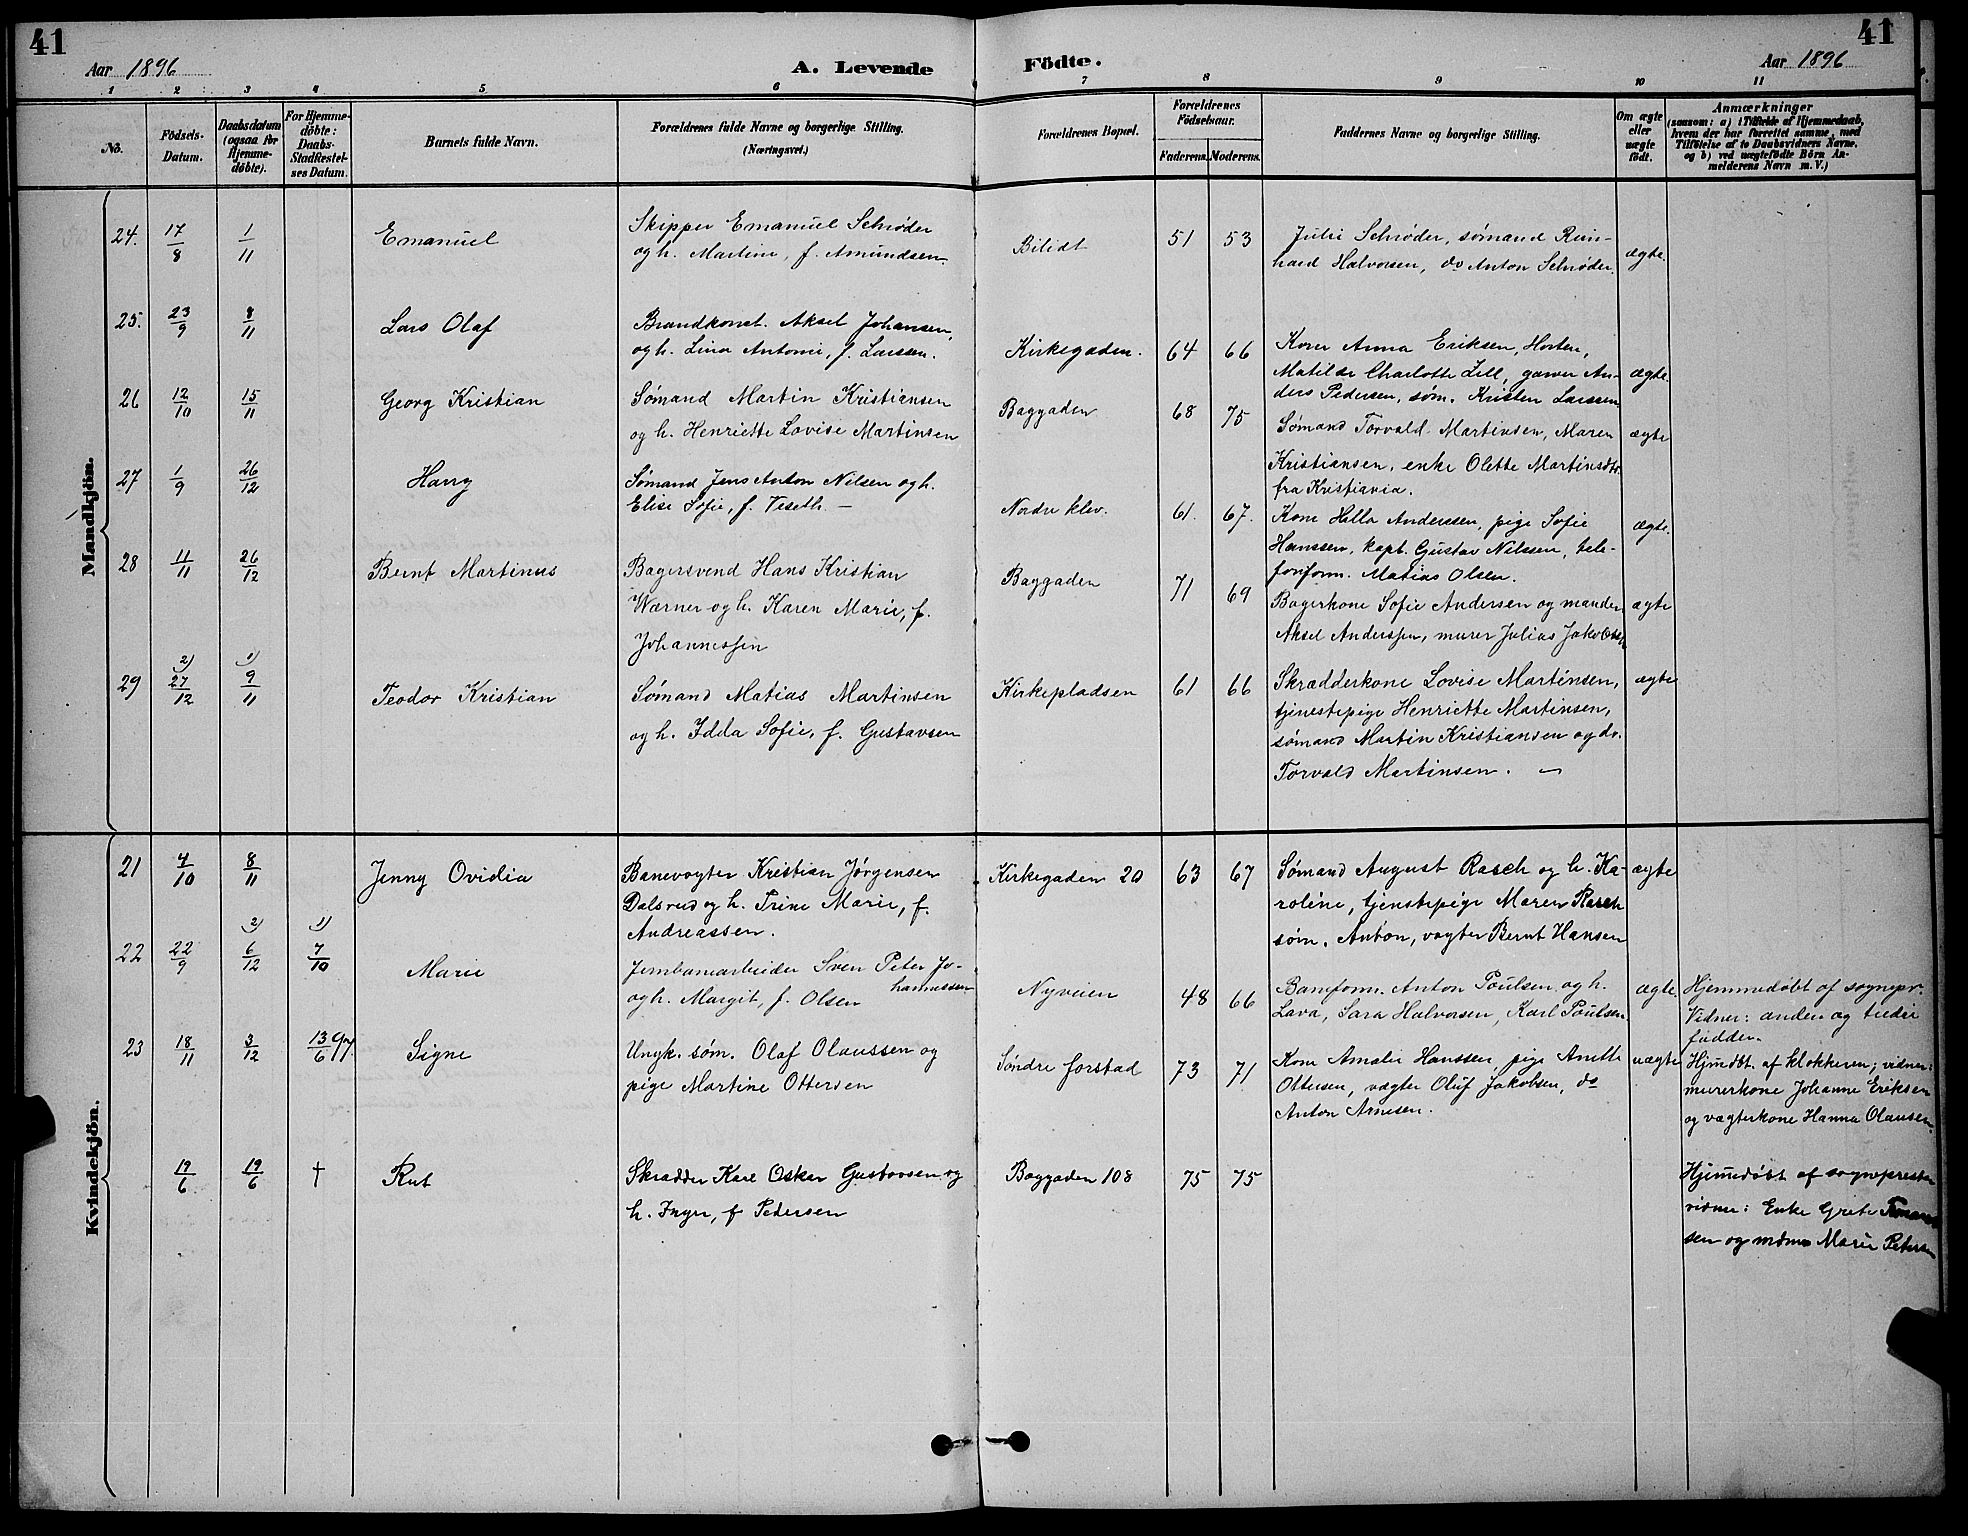 41
41
Aar 1896
A. Levende Födte.
Aar 1896
1 2 3 4 5 6 7 8 9 10 11
No.
Födsels-
Datum.
Daabsdatum
(ogsaa for
Hjemme-
döbte).
For Hjemme-
döbte:
Daabs-
Stadfestel-
ses Datum.
Barnets fulde Navn.
Forældrenes fulde Navne og borgerlige Stilling.
(Næringsvei.)
Forældrenes Bopæl.
Forældrenes
Födselsaar.
Faderens. Moderens.
Faddernes Navne og borgerlige Stilling.
Om ægte
eller
uægte
födt.
Anmærkninger
(saasom: a) i Tilfælde af Hjemmedaab,
hvem der har forrettet samme, med
Tilföielse af to Daabsvidners Navne,
og b) ved uægtefödte Börn An-
melderens Navn m. V.)
Mandkjön.
24. 17/8 1/11 Emanuel
Skipper Emanuel Schrøder
og h. Martine, f. Amundsen.
Bilidt 51 53
Julie Schrøder, sømand Rein-
hard Halvorsen, do Anton Schrøder.
ægte.
25. 23/9 8/11 Lars Olaf
Brandkonst. Aksel Johansen,
og h. Lina Antonie, f. Larssen.
Kirkegaden. 64 66
Kone Anna Eriksen, Horten,
Matilde Charlotte Lill, garver An-
ders Pedersen, søm. Kristen Larssen
ægte.
26 12/10 15/11 Georg Kristian
Sømand Martin Kristiansen
og h. Henriette Lovise Martinsen
Baggaden 68 75
Sømand Torvald Martinsen, Maren
Kristiansen, enke Olette Martinsdtr.
fra Kristiania.
ægte
27 1/9 26/12 Harry
Sømand Jens Anton Nilsen og h.
Elise Sofie, f. Veseth. —
Nordre klev. 61. 67.
Kone Hilla Anderssen, pige Sofie
Hanssen, kapt. Gustav Nilssen, tele-
fonform. Matias Olsen.
ægte.
28 11/11 26/12 Bernt Martinus
Bagersvend Hans Kristian
Wærner og h. Karen Marie, f.
Johannessen
Baggaden 71 69
Bagerkone Sofie Andersen og manden
Aksel Anderssen, murer Julius Jakobsen
ægte
29 2) 27/12 1) 9/11 Teodor Kristian
Sømand Matias Martinsen
og h. Idda Sofie, f. Gustavsen
Kirkepladsen 61 66
Skrædderkone Lovise Martinsen,
tjenestepige Henriette Martinsen,
sømand Martin Kristiansen og do.
Torvald Martinsen. —
ægte
Kvindekjön.
21 4/10 8/11 Jenny Ovidia
Banevogter Kristian Jørgensen
Dalsrud og h. Trine Marie, f.
Andreassen.
Kirkegaden 20 63 67
Sømand August Rasch og h. Ka-
roline, tjenstepige Maren Rasch
søm. Anton, vogter Bernt Hansen
ægte
22 22/9 2) 6/12 1) 7/10 Marie
Jernbanearbeider Sven Peter Jo-
hannessen
og h. Margit, f. Olsen
Nyveien 48 66
Baneform. Anton Poulsen og h.
Lava, Sara Halvorsen, Karl Poulsen
ægte.
Hjemmedøbt af sognepr.
Vidner: anden og tredie
fadder.
23 18/11 3/12 13/6 97. Signe
Ungk. søm. Olaf Olaussen og
pige Martine Ottersen
Søndre forstad 73 71
Kone Amalie Hanssen, pige Anette
Ottersen, vægter Oluf Jakobsen, do
Anton Arnesen.
uægte
Hjmdbt. af klokkeren; vidner:
murerkone Johanne Eriksen
og vægterkone Hanna Olausen.
19/6 19/6 † Rut
Skrædder Karl Oskar Gustavsen og
h. Inger, f. Pedersen
Baggaden 108 75 75
Hjemmedøbt af sognepresten
vidner: Enke Grete
sen og Marie Petersen